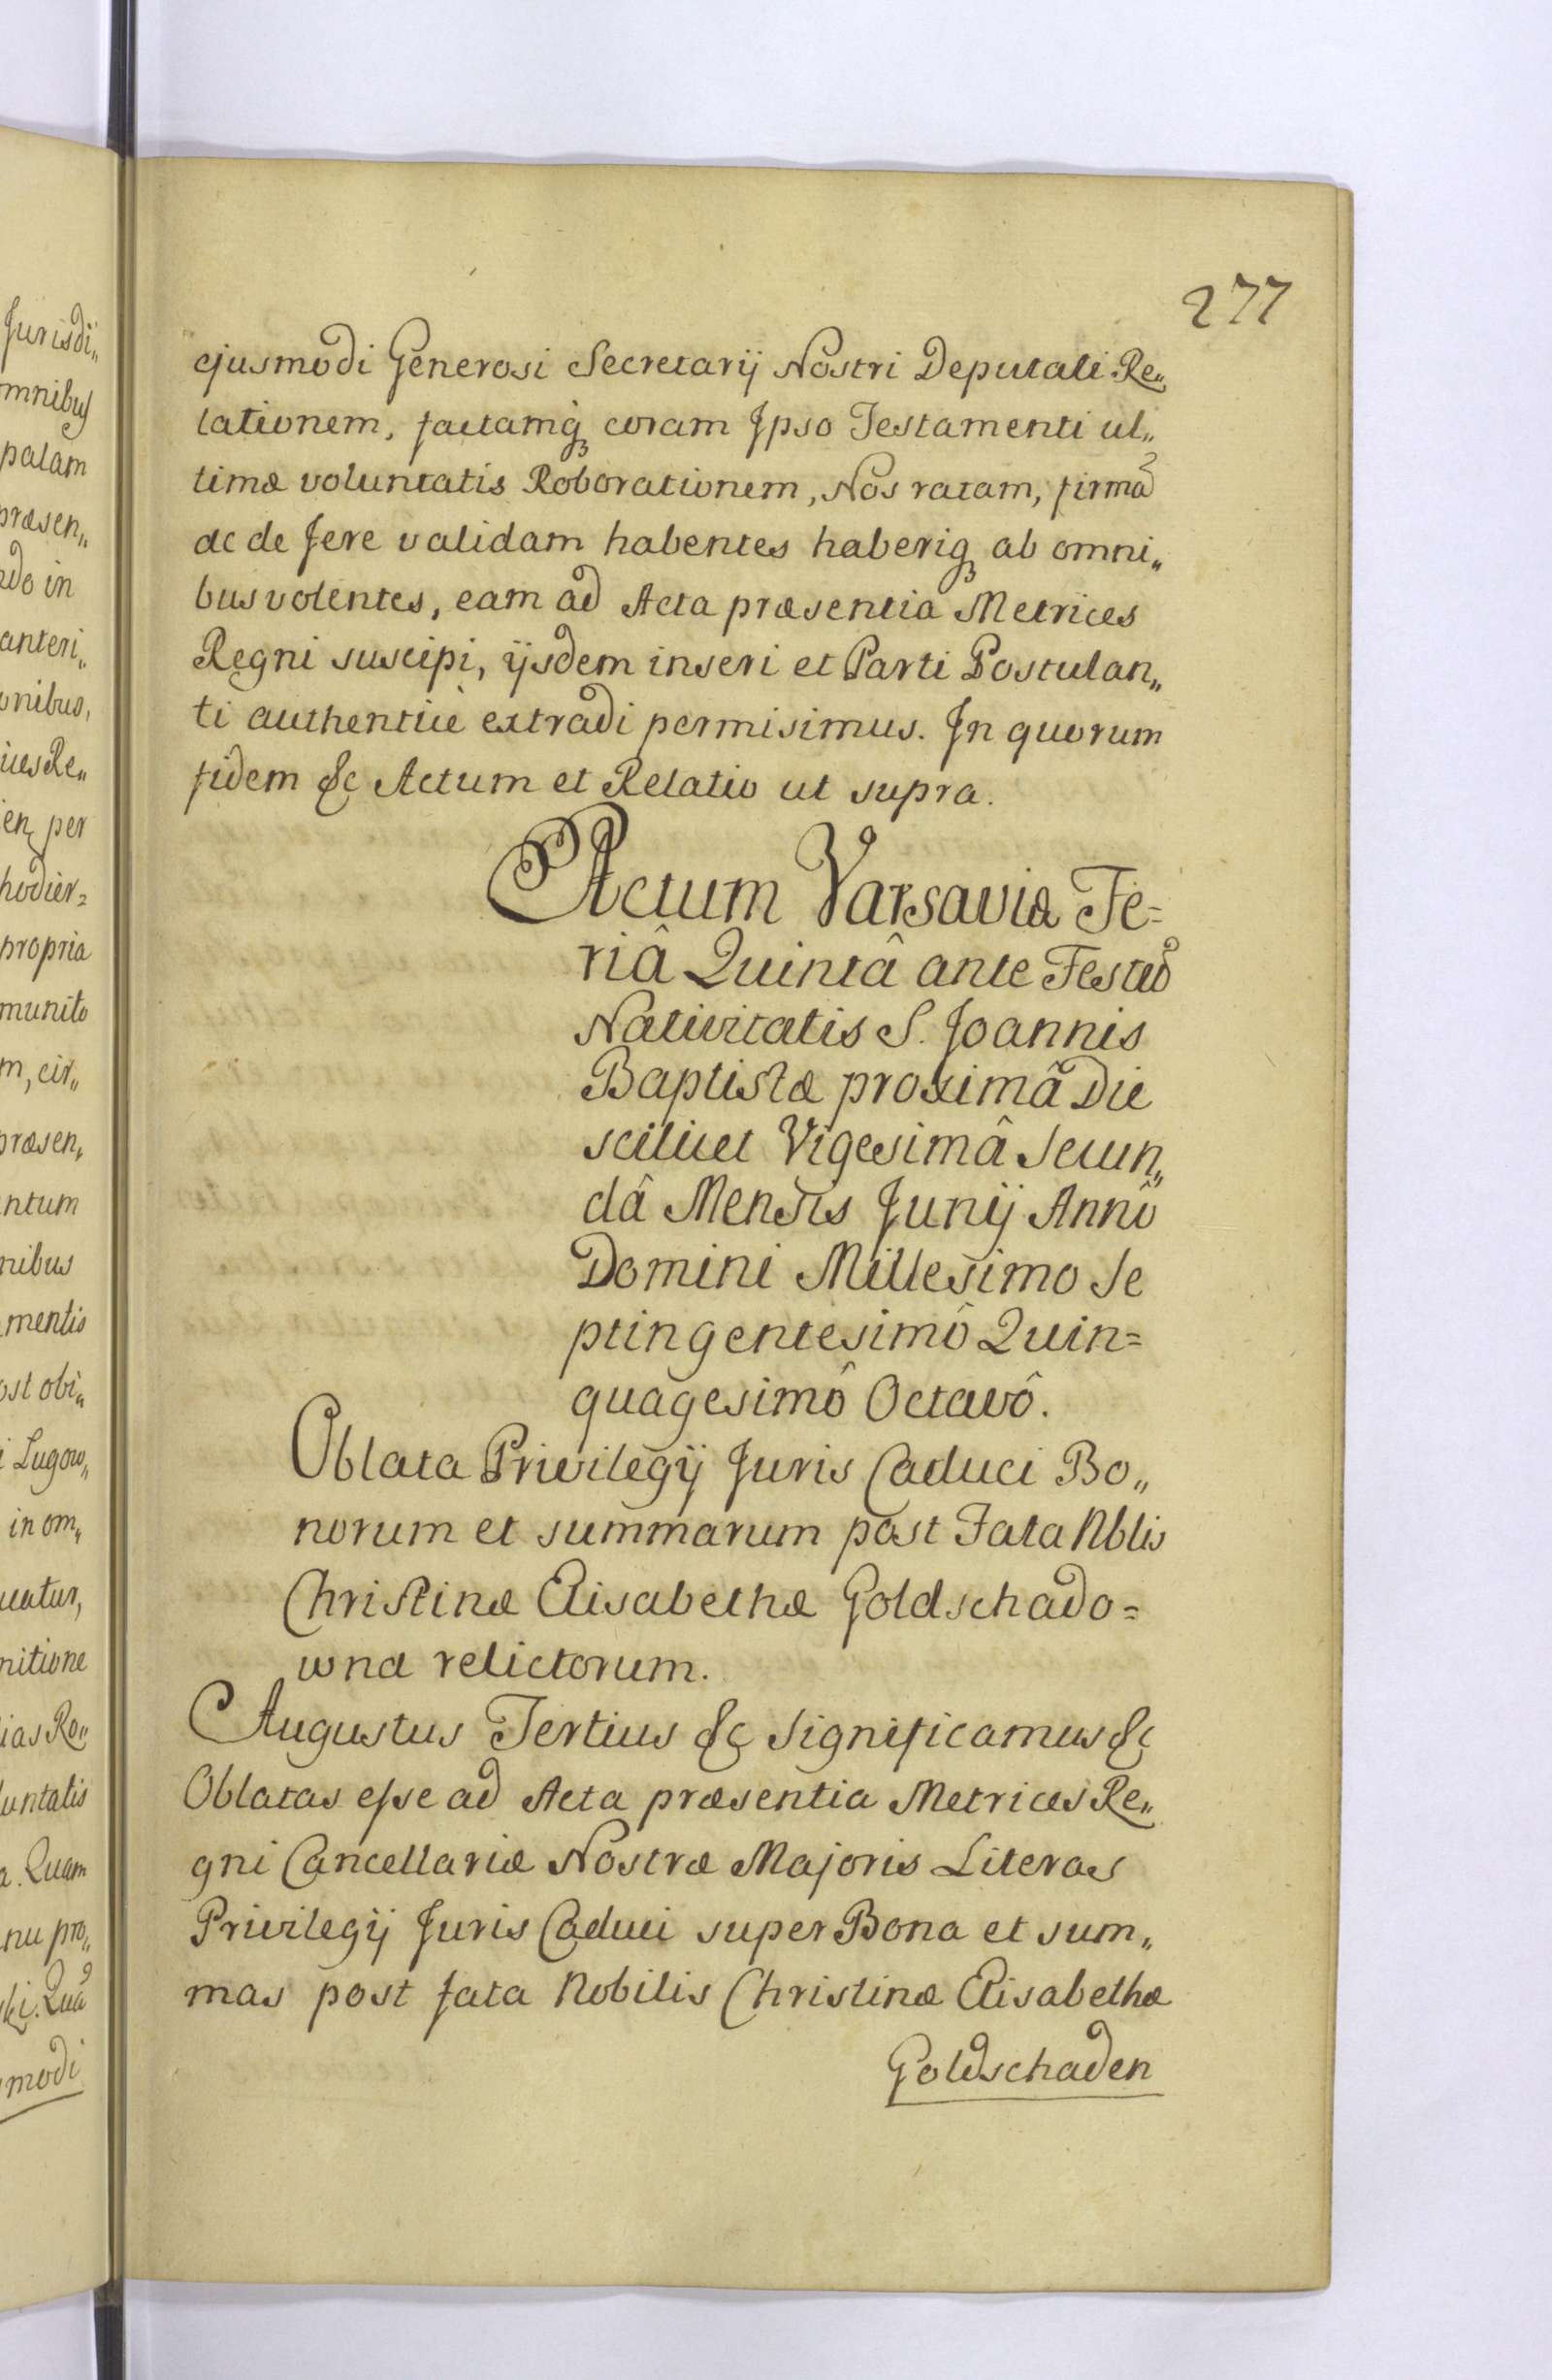 277
ejusmodi Generosi Secretarij Nostri Deputati Re„
lationem, factamq; coram Ipso Testamenti ul„
timæ voluntatis Roborationem, Nos ratam, firmã
ac de Jere validam habentes haberiq; ab omni„
bus volentes, eam ad Acta præsentia Metrices
Regni suscipi, ijsdem inseri et Parti Postulan„
ti authenticè extradi permisimus. In quorum
fidem &c Actum et Relatio ut supra.
Actum Varsaviæ Fe=
riâ Quintâ ante Festũ
Nativitatis S. Joannis
Baptistæ proximâ Die
scilicet Vigesimâ Secun„
dâ Mensis Junij Annô
Domini Millesimo Se
ptingentesimô Quin=
quagesimô Octavô.
Oblata Privilegij Juris Caduci Bo„
norum et summarum post Fata Nblis
Christinæ Elisabethæ Goldschado=
wna relictorum.
Augustus Tertius &c Significamus &c
Oblatas esse ad Acta præsentia Metrices Re„
gni Cancellariæ Nostræ Majoris Literas
Privilegij Juris Caduci super Bona et sum„
mas post fata Nobilis Christinæ Elisabethæ
Goldschaden
Jurisdi„
omnibus
palam
præsen„
do in
anteri„
onibus,
ices Re„
per
hodier=
propria
munito
m, cir„
præsen„
ntum
nibus
mentis
ost obi„
i Lugow„
in om„
uatur,
nitione
ias Ro„
luntatis
a. Quam
nu pro„
ski. Quã
modi